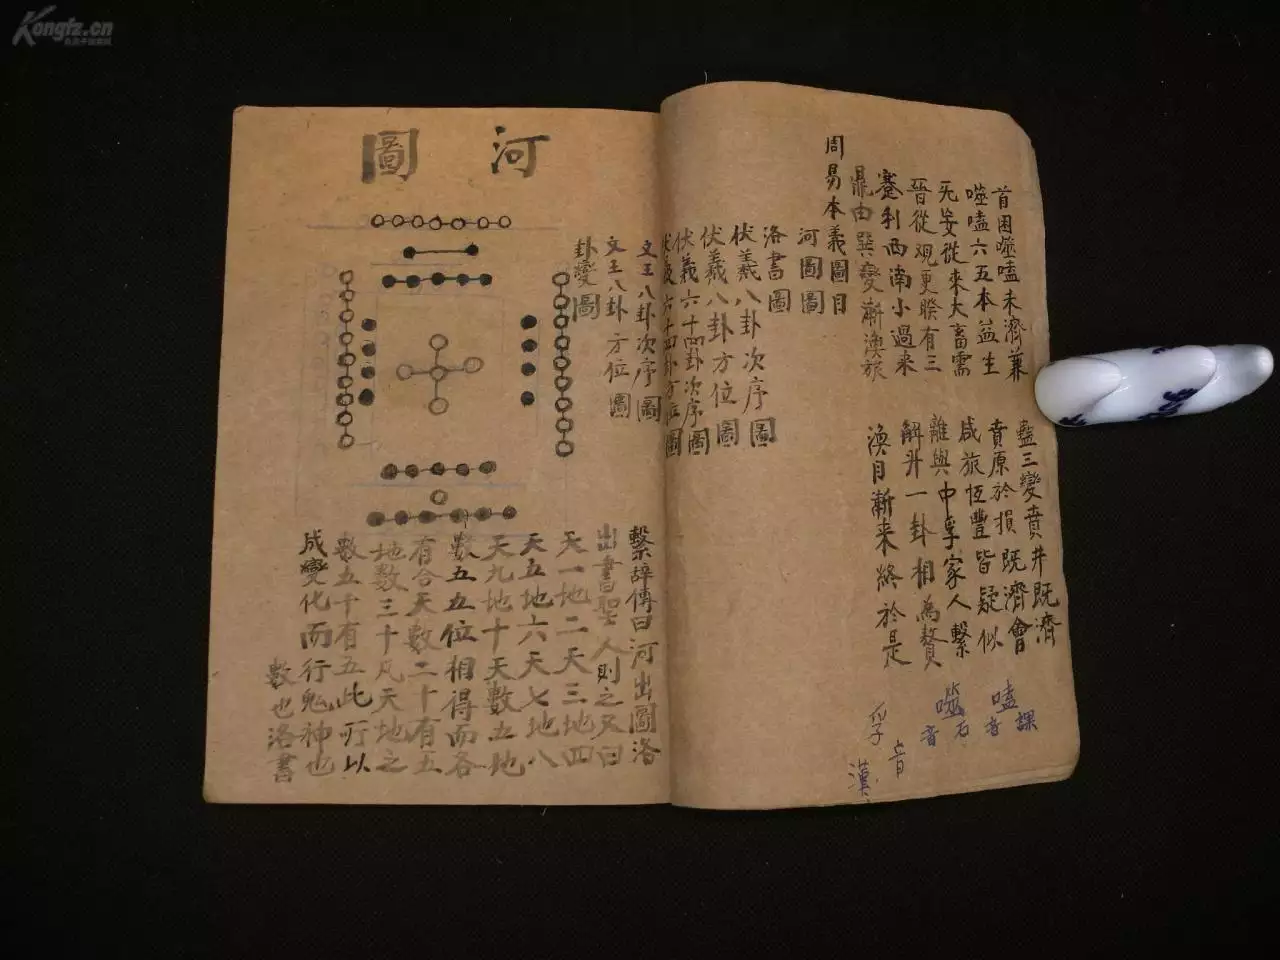 首困噬嗑未濟兼
蠱三變賁井既濟
噬嗑六五本益生
賁原於損既濟會
无妄從來大畜需
咸旅恆豐皆疑似
晉從觀更睽有三
離與中孚家人繫
蹇利西南小過来
解升一卦相為贅
鼎由巽變漸渙旅
渙目漸来終於是
嗑音課
噬音石
孚音
周易本義圖目
河圖圖
洛書圖
伏羲八卦次序圖
伏羲八卦方位圖
伏羲六十四卦次序圖
伏羲六十四卦方位圖
文王八卦次序圖
文王八卦方位圖
卦變圖
河圖
繫辭傳曰河出圖洛
出書聖人則之又曰
天一地二天三地四
天五地六天七地八
天九地十天數五地
數五五位相得而各
有合天數二十有五
地數三十凡天地之
數五十有五此所以
成變化而行鬼神也
數也洛書
Kongfz.cn